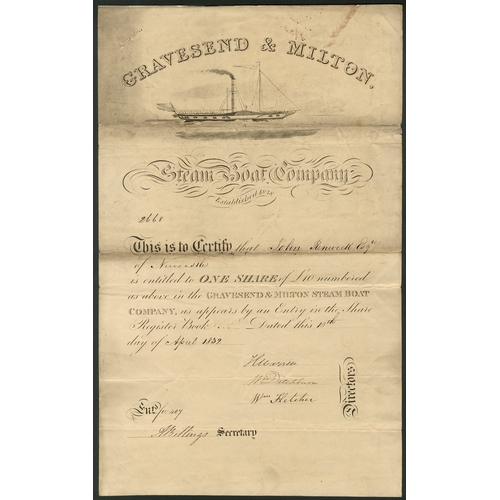 GRAVESEND & MILTON,
Steam Boat Company
Established 18
2668
This is to Certify that John Esqr.
of
is entitled to ONE SHARE of £10 numbered
as above in the GRAVESEND & MILTON STEAM BOAT
COMPANY, as appears by an Entry in the Share
Register Book Dated this 18th
day of April 1832
Wm. Fletcher
Directors
Entd. fo: 407
Billings Secretary